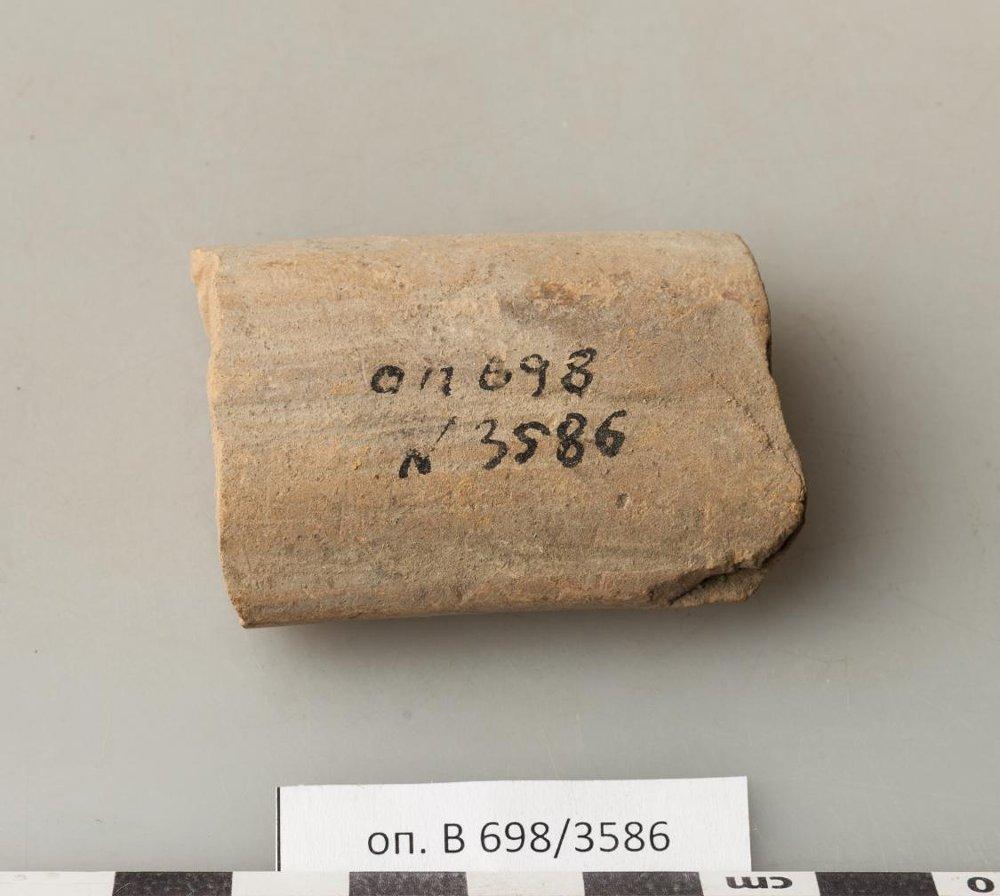 оп 698
N 3586
оп. В 698/3586
cm 0